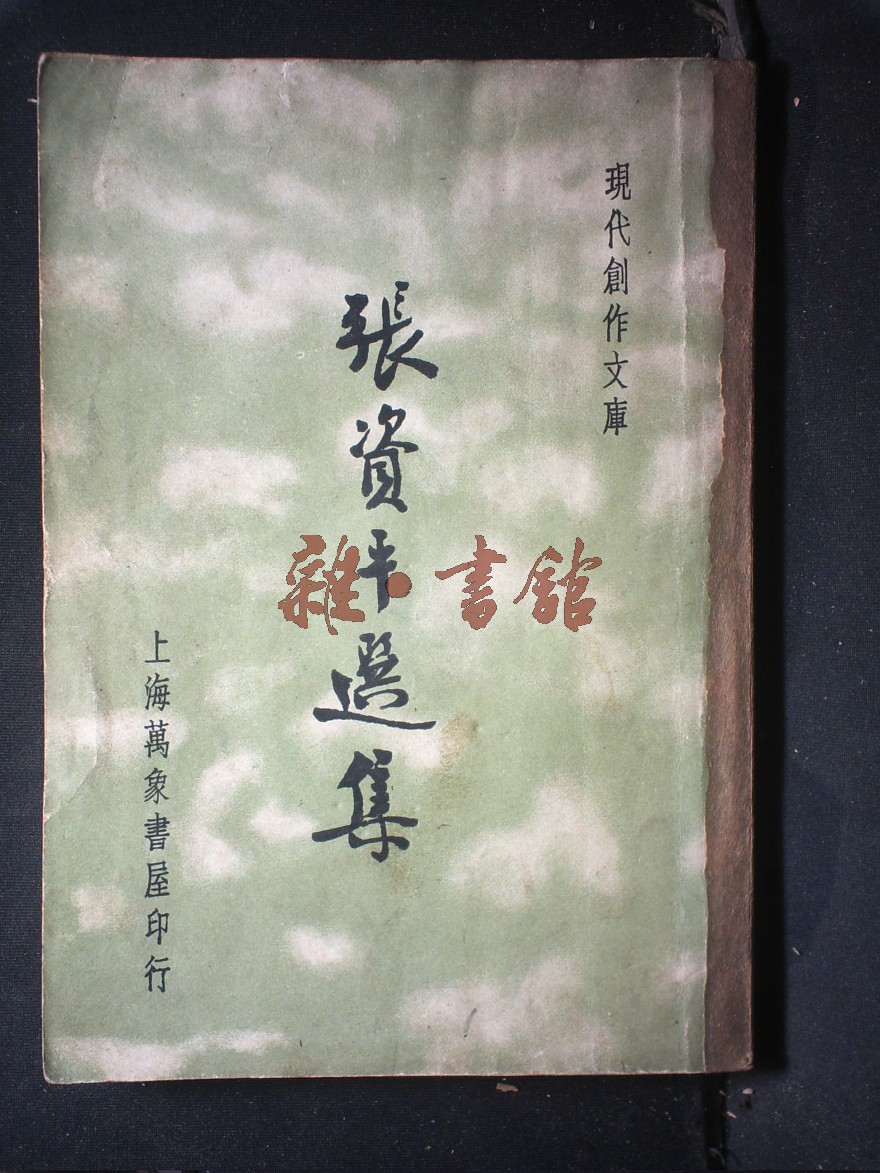 現代創作文庫
張資平選集
上海萬象書屋印行
雜·書館